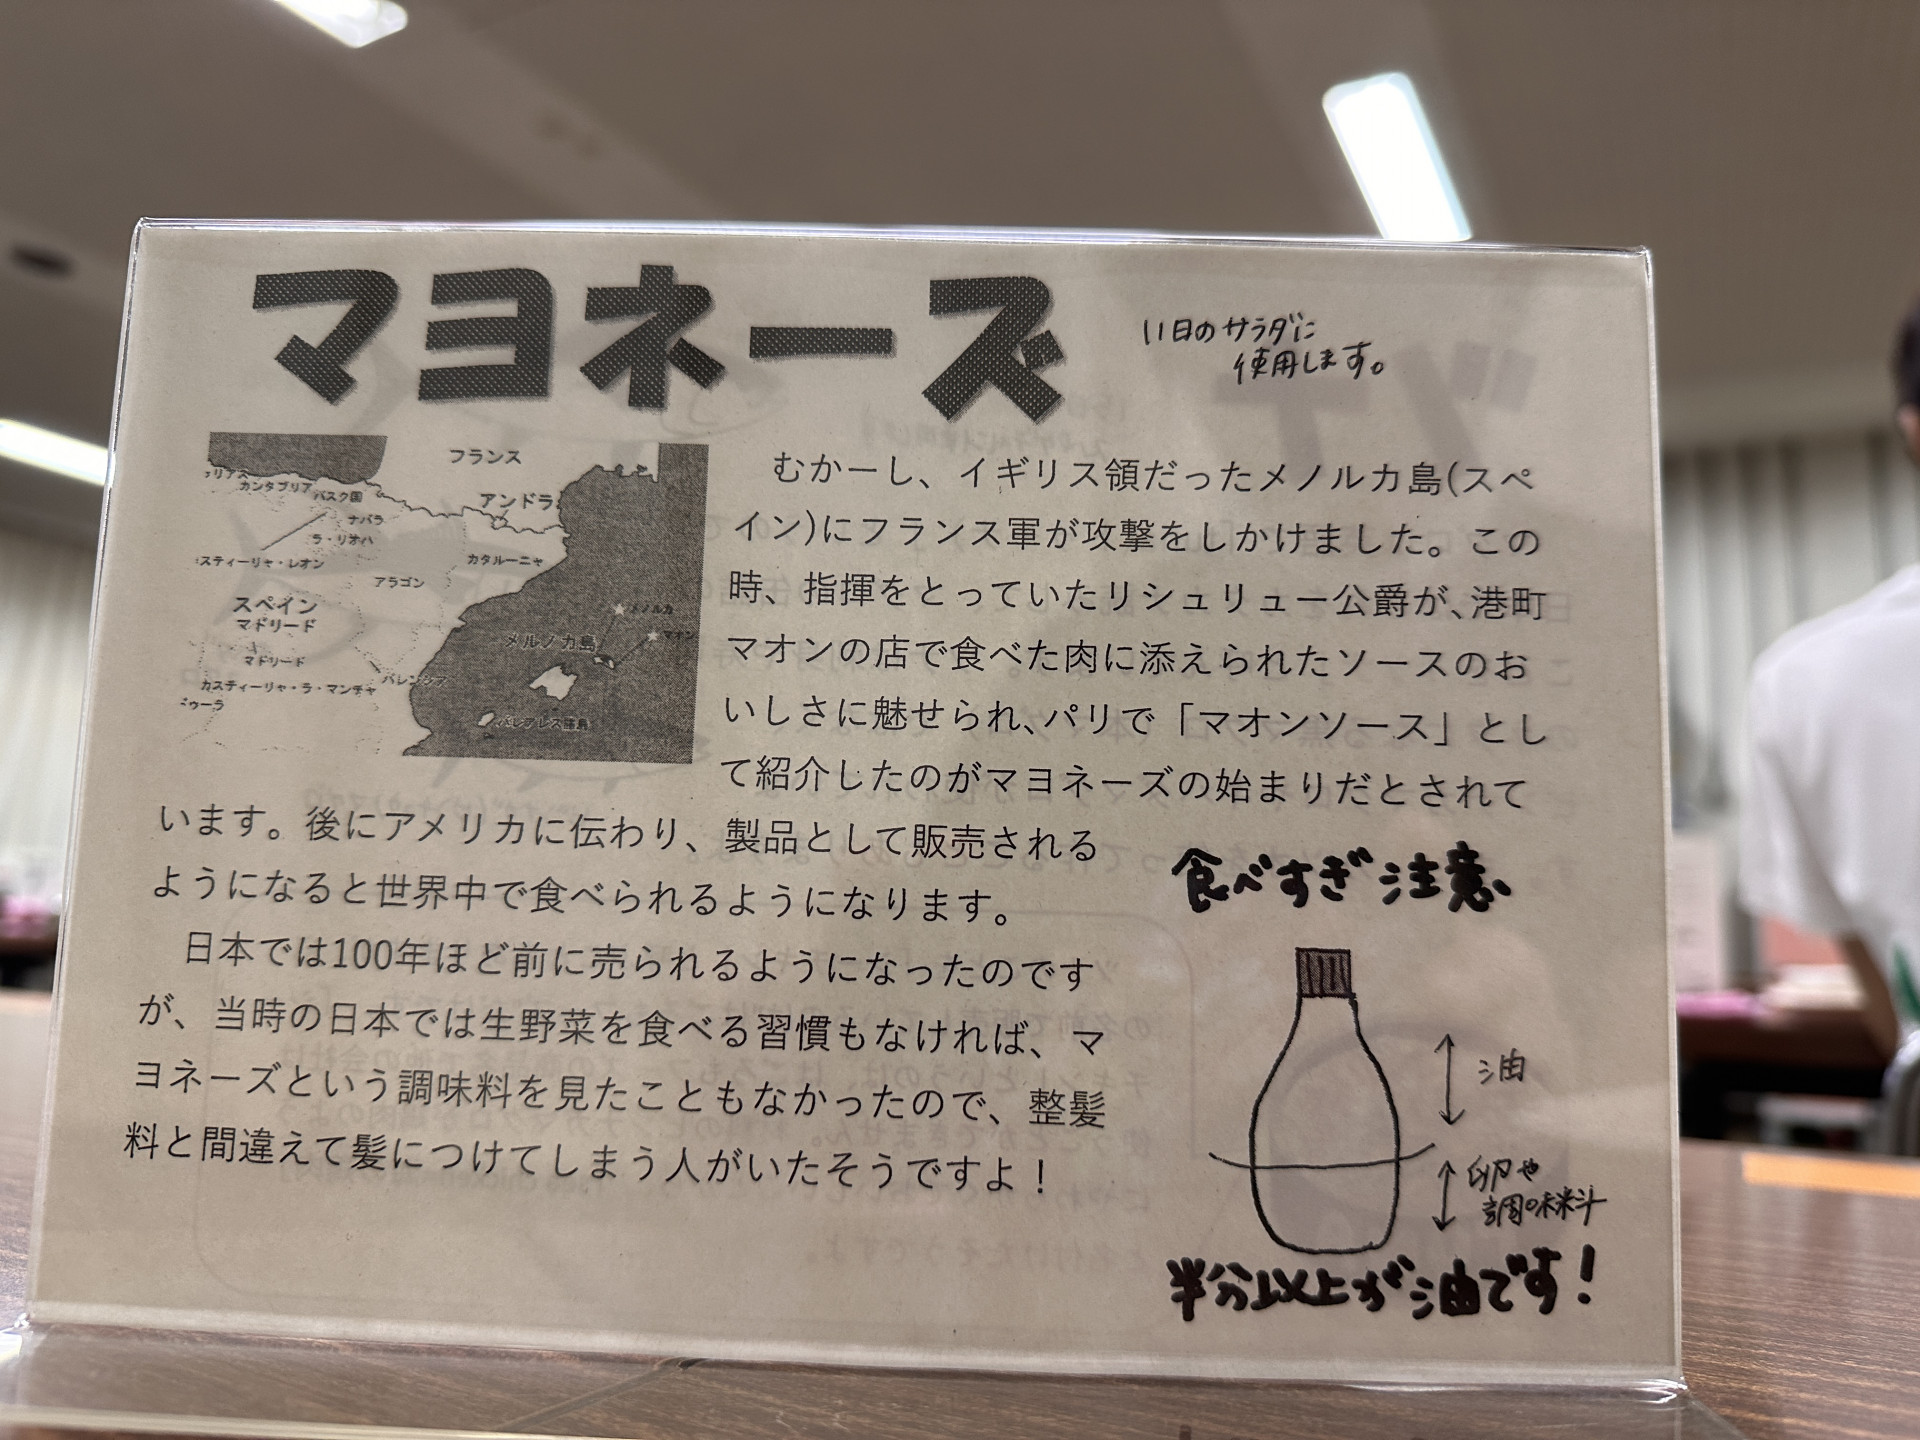 マヨネーズ
11日のサラダに
使用します。
フランス
カンタブリア
バスク国
アンドラ
ナバラ
ラ・リオハ
カタルーニャ
アラゴン
スペイン
マドリード
メノルカ
マオン
メルノカ島
マドリード
バレンシア
カスティーリャ・ラ・マンチャ
バレアレス諸島
むかーし、イギリス領だったメノルカ島(スペ
イン)にフランス軍が攻撃をしかけました。この
時、指揮をとっていたリシュリュー公爵が、港町
マオンの店で食べた肉に添えられたソースのお
いしさに魅せられ、パリで「マオンソース」とし
て紹介したのがマヨネーズの始まりだとされて
います。後にアメリカに伝わり、製品として販売される
ようになると世界中で食べられるようになります。
日本では100年ほど前に売られるようになったのです
が、当時の日本では生野菜を食べる習慣もなければ、マ
ヨネーズという調味料を見たこともなかったので、整髪
料と間違えて髪につけてしまう人がいたそうですよ！
食べすぎ注意、
油
卵や
調味料
半分以上が油です！